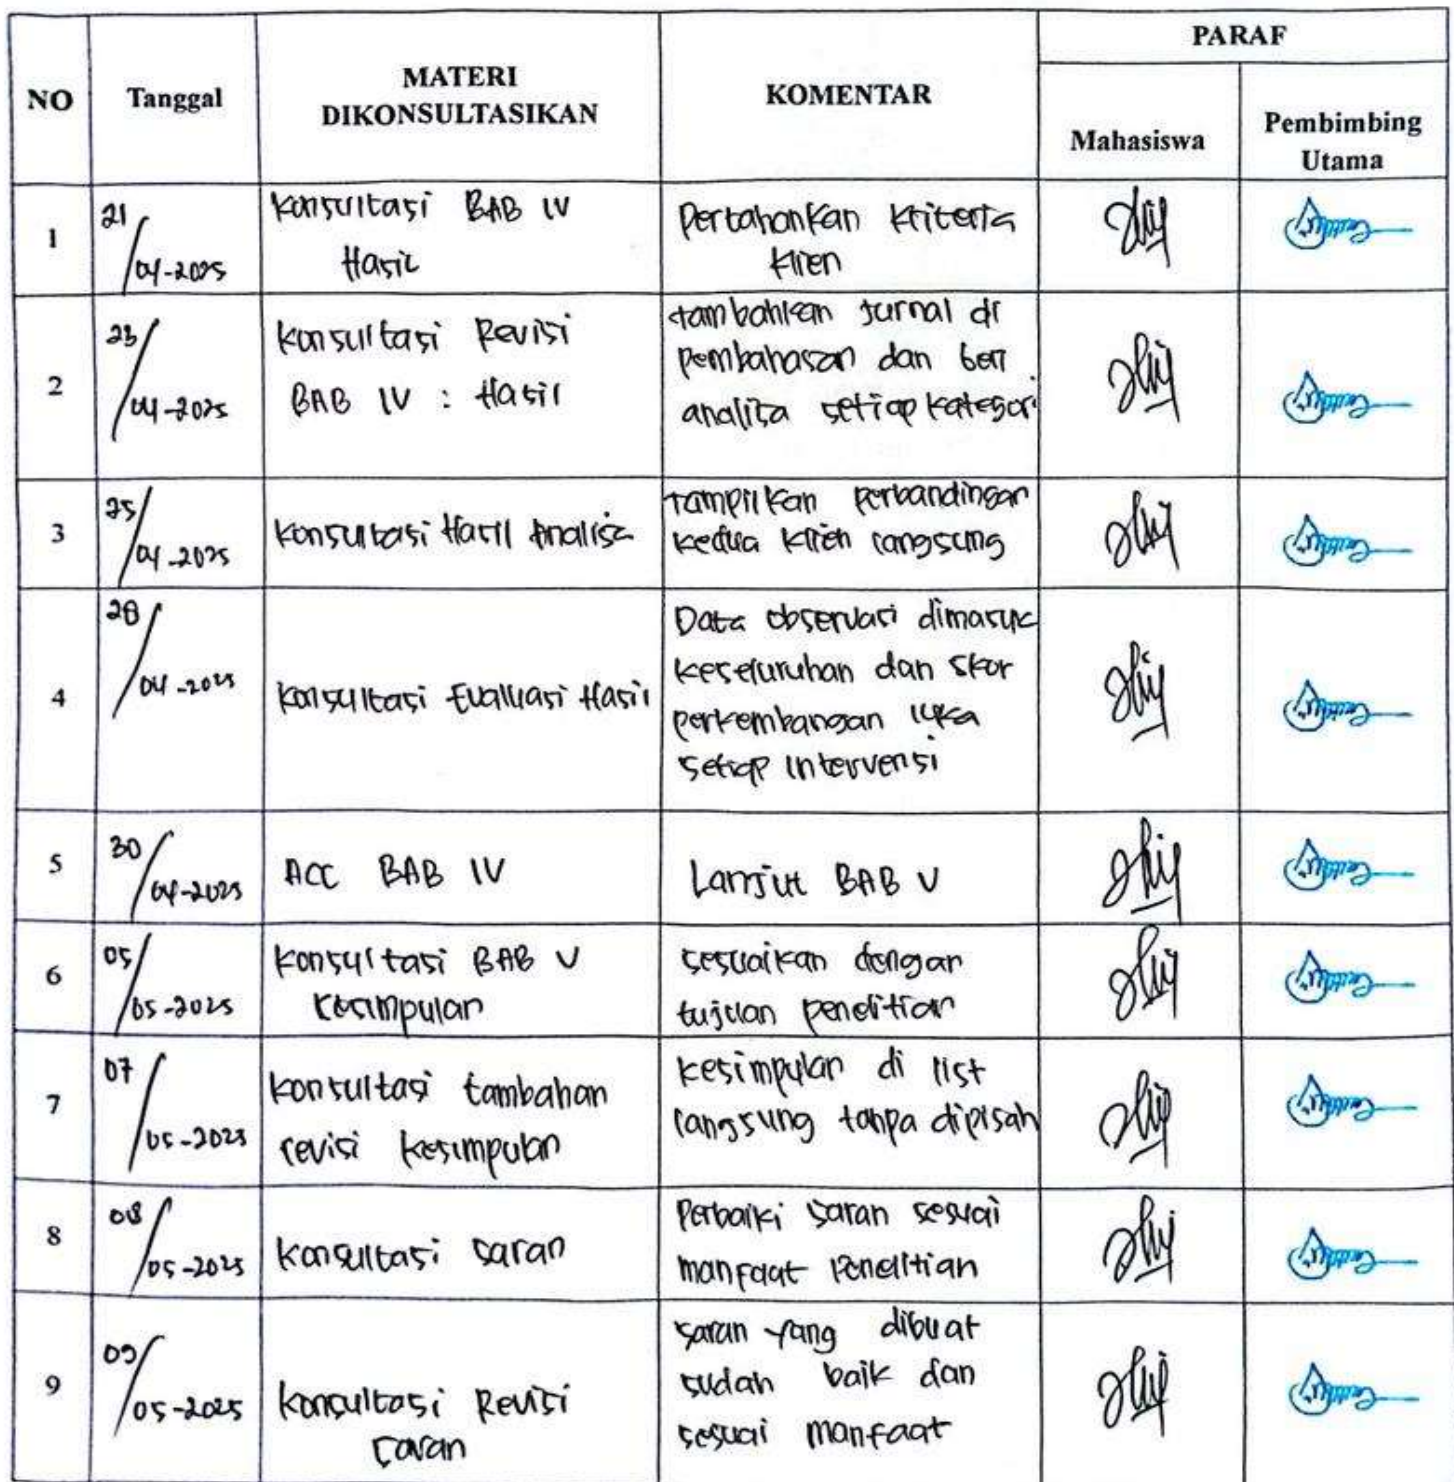 PARAF
NO Tanggal MATERI DIKONSULTASIKAN KOMENTAR
Mahasiswa Pembimbing Utama
1 21/04-2025 Konsultasi BAB IV Pertahankan Kriteria
Hasil Klien
2 23/04-2025 Konsultasi Revisi tambahkan jurnal di
BAB IV : Hasil pembahasan dan beri
analisa setiap kategori
3 25/04-2025 Konsultasi Hasil Analisa tampilkan perbandingan
kedua klien langsung
4 28/04-2025 Konsultasi Evaluasi Hasil Data observasi dimasuk
keseluruhan dan skor
perkembangan luka
setiap intervensi
5 30/04-2025 ACC BAB IV Lanjut BAB V
6 05/05-2025 Konsultasi BAB V sesuaikan dengan
Kesimpulan tujuan penelitian
7 07/05-2025 Konsultasi tambahan kesimpulan di list
revisi kesimpulan langsung tanpa dipisah
8 08/05-2025 Konsultasi saran Perbaiki saran sesuai
manfaat penelitian
9 09/05-2025 Konsultasi Revisi saran yang dibuat
saran sudah baik dan
sesuai manfaat